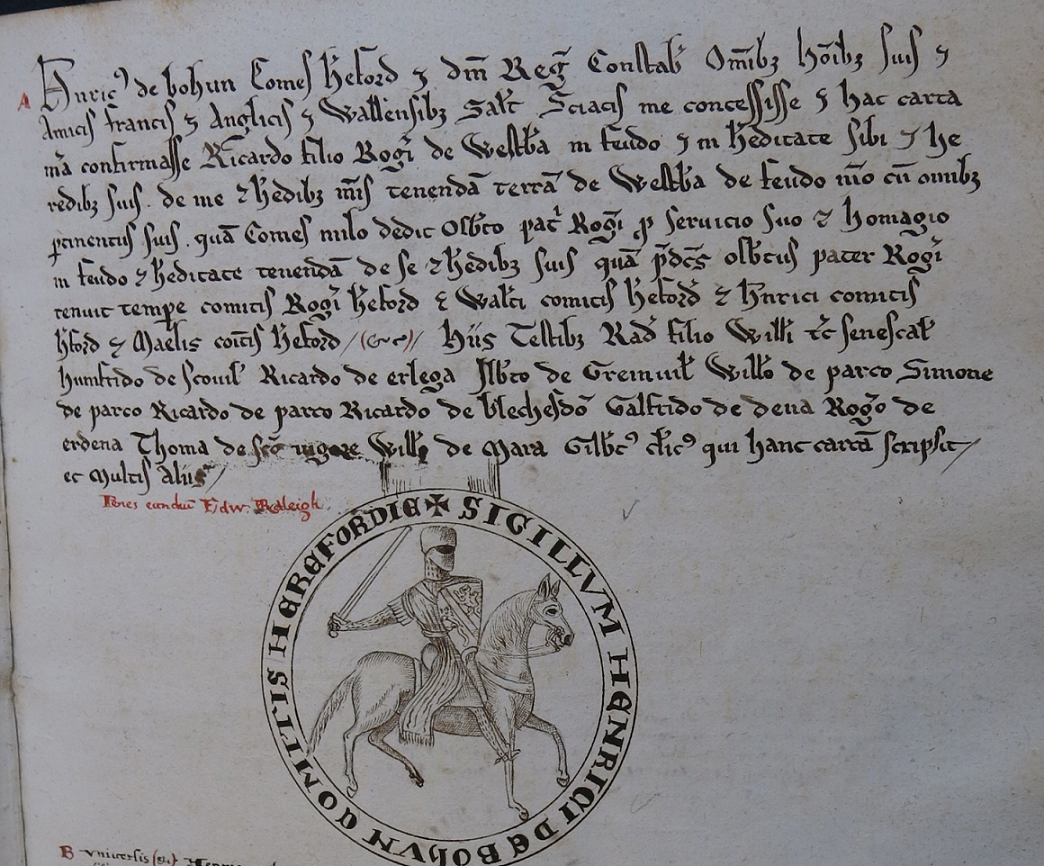 A Henric' de bohun Comes h'eford ⁊ dn̄i Reg̃ Constab' Om̄ibꝫ ho͞ibꝫ suis ⁊
Amicis francis ⁊ Anglicis ⁊ Wallensibꝫ Sal't Sciatis me concessisse ⁊ hac carta
m̄a confirmasse Ricardo filio Rog̃i de Westb̃a in feudo ⁊ in h'editate sibi ⁊ he
redibꝫ suis . de me ⁊ h'edibꝫ m̄is tenendā terrā de Westb̃a de feudo m̄o cū omībꝫ
ꝑtinentiis suis . quā Comes milo dedit Osb'to pat' Rog̃i ꝓ servicio suo ⁊ homagio
in feudo ⁊ h'editate tenendā de se ⁊ h'edibꝫ suis quā p̄dc̄s osb'tus pater Rog̃i
tenuit tempe comitis Rog̃i h'eford ⁊ Walt'i comitis h'eford ⁊ h'nrici comitis
h'ford ⁊ Maelis com̄tis h'eford /(&c)/ hiis Testibꝫ Rad' filio Willi' tc̄ senescal'
humfrido de scouil' Ricardo de erlega Ilb'to de Greinuil' Will'o de parco Simone
de parco Ricardo de parco Ricardo de blechesdō Galfrido de dena Rog̃o de
erdena Thoma de Will' de Mara Gilb't' cl'ic' qui hanc cartā scripsit/
et Multis aliis/
Penes eundem Edw. Raleigh.
✠ SIGILLVM HENRICI DE BOHVN COMITIS HEREFORDIE
B Vniuersis (&c)